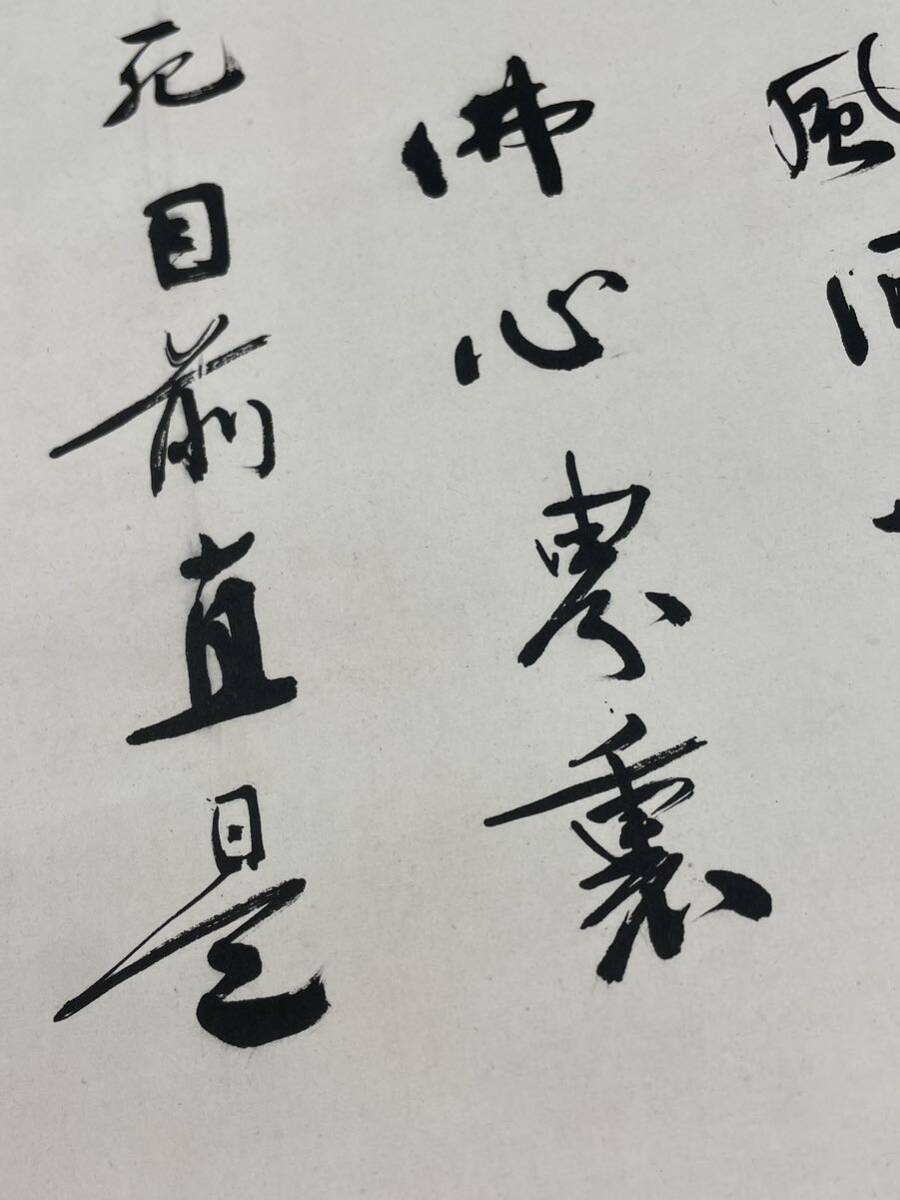 風
佛心界裏
死目前直是